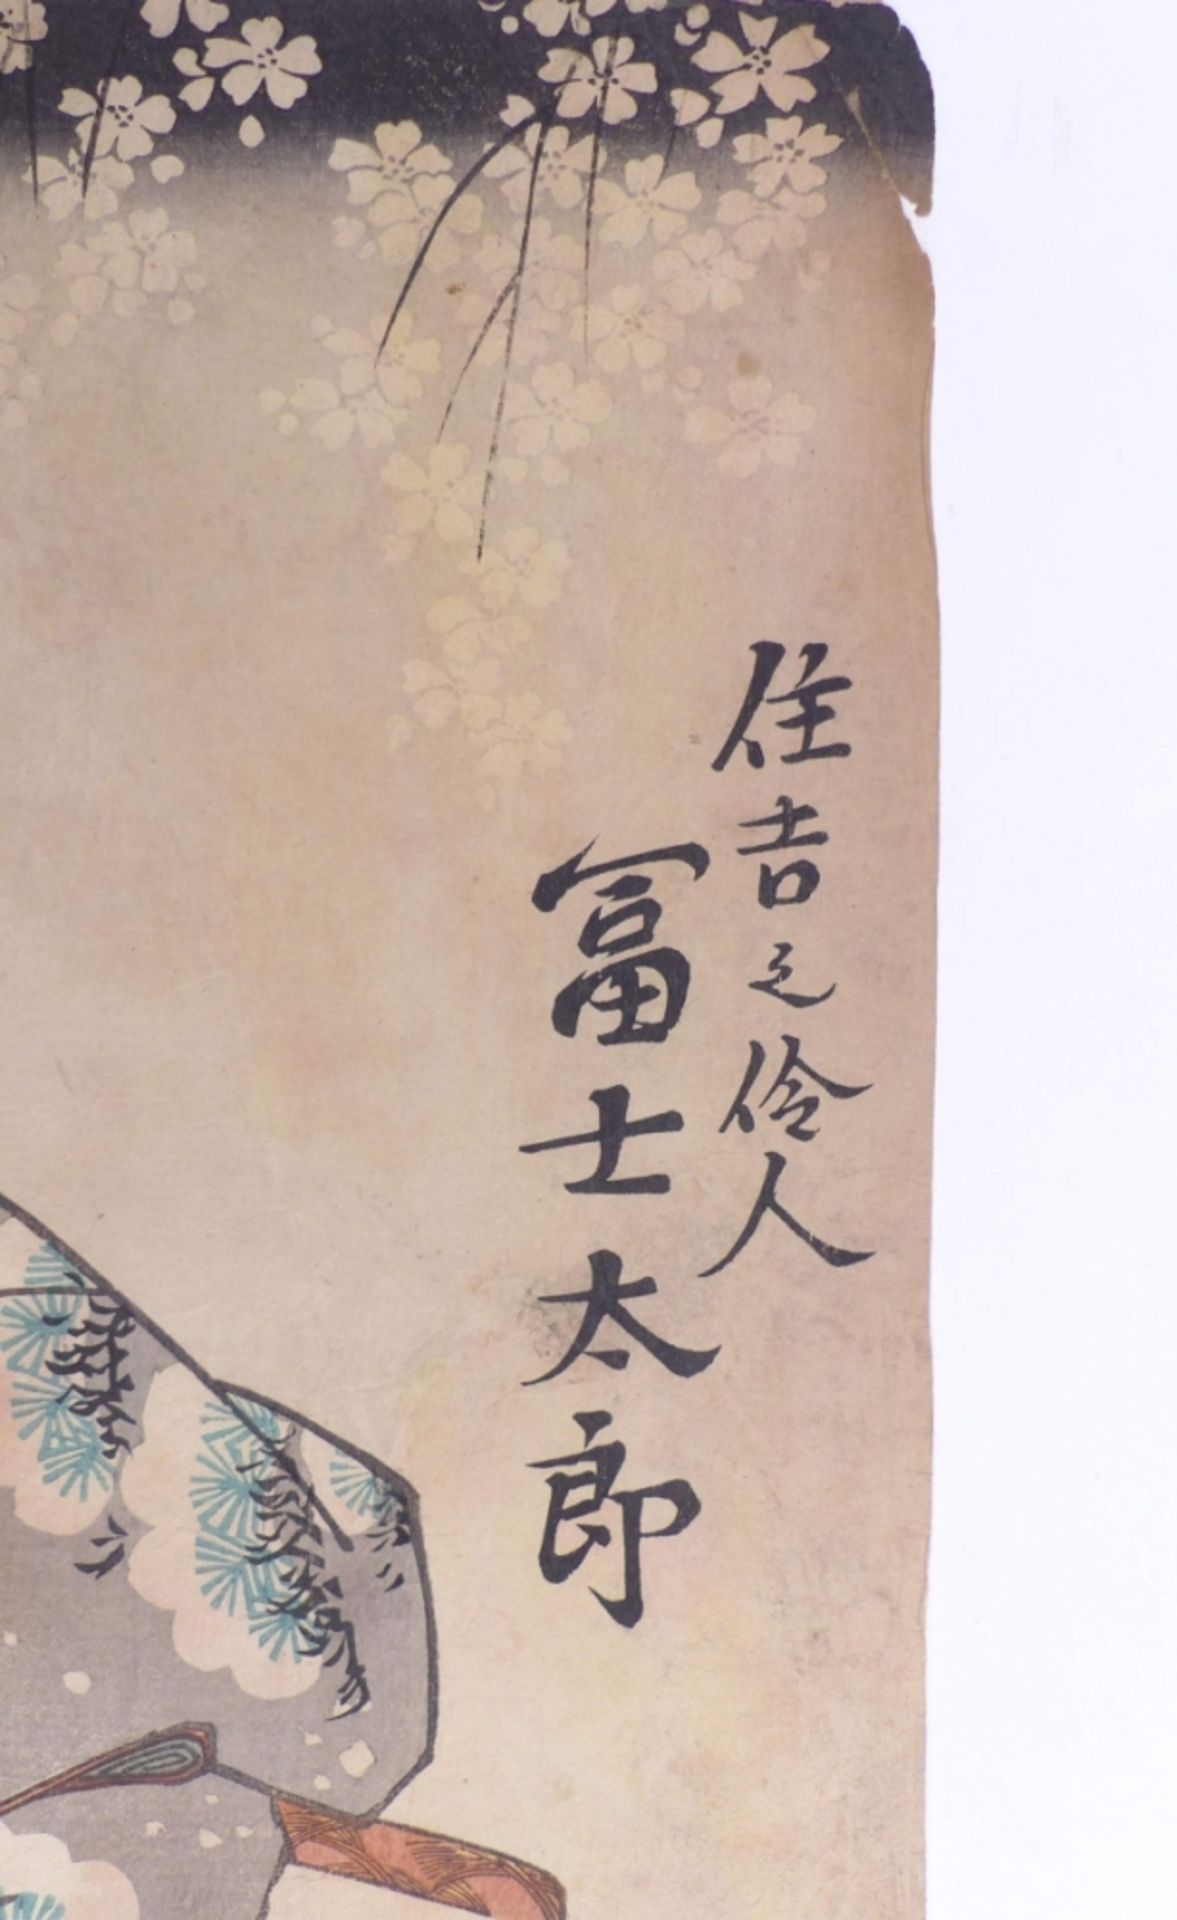 住吉之伶人
冨士太郎